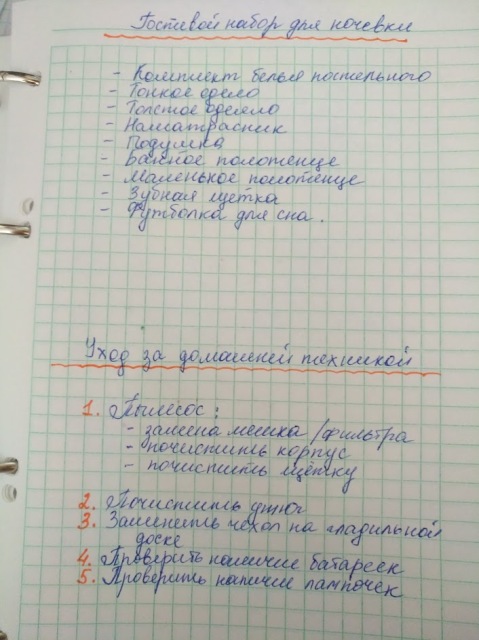 Гостевой набор для ночевки
- Комплект белья постельного
- Тонкое одело
- Толстое одеяло
- Наматрасник
- Подушка
- Банное полотенце
- Маленькое полотенце
- Зубная щетка
- Футболка для сна.
Уход за домашней техникой
1. Пылесос:
- замена мешка/фильтра
- почистить корпус
- почистить щётку
2. Почистить утюг
3. Заменить чехол на гладильной
доске
4. Проверить наличие батареек
5. Проверить наличие лампочек